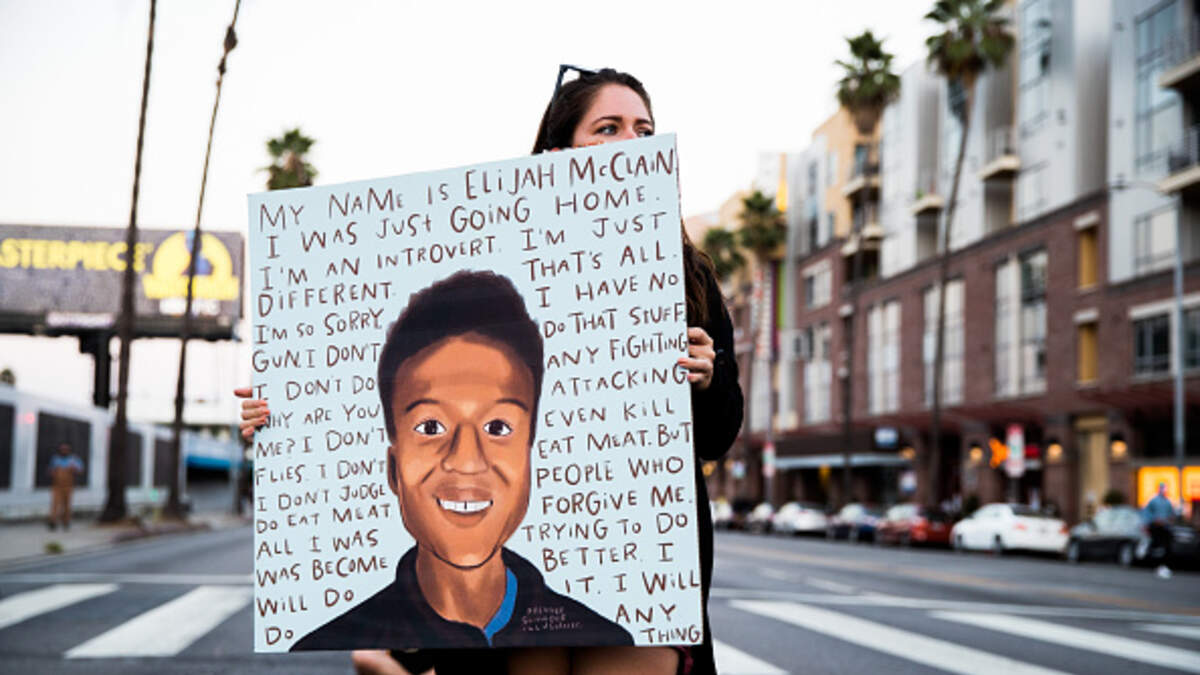 STERPIECE
MY NAME IS ELIJAH MCCLAIN
I WAS JUST GOING HOME.
I'M AN INTROVERT. I'M JUST
DIFFERENT. THAT'S ALL.
I'M SO SORRY I HAVE NO
GUN. I DON'T DO THAT STUFF
I DON'T DO ANY FIGHTING
WHY ARE YOU ATTACKING
ME? I DON'T EVEN KILL
FLIES. I DON'T EAT MEAT. BUT
I DON'T JUDGE PEOPLE WHO
DO EAT MEAT FORGIVE ME.
ALL I WAS TRYING TO DO
WAS BECOME BETTER. I
WILL DO IT. I WILL
DO ANY
THING